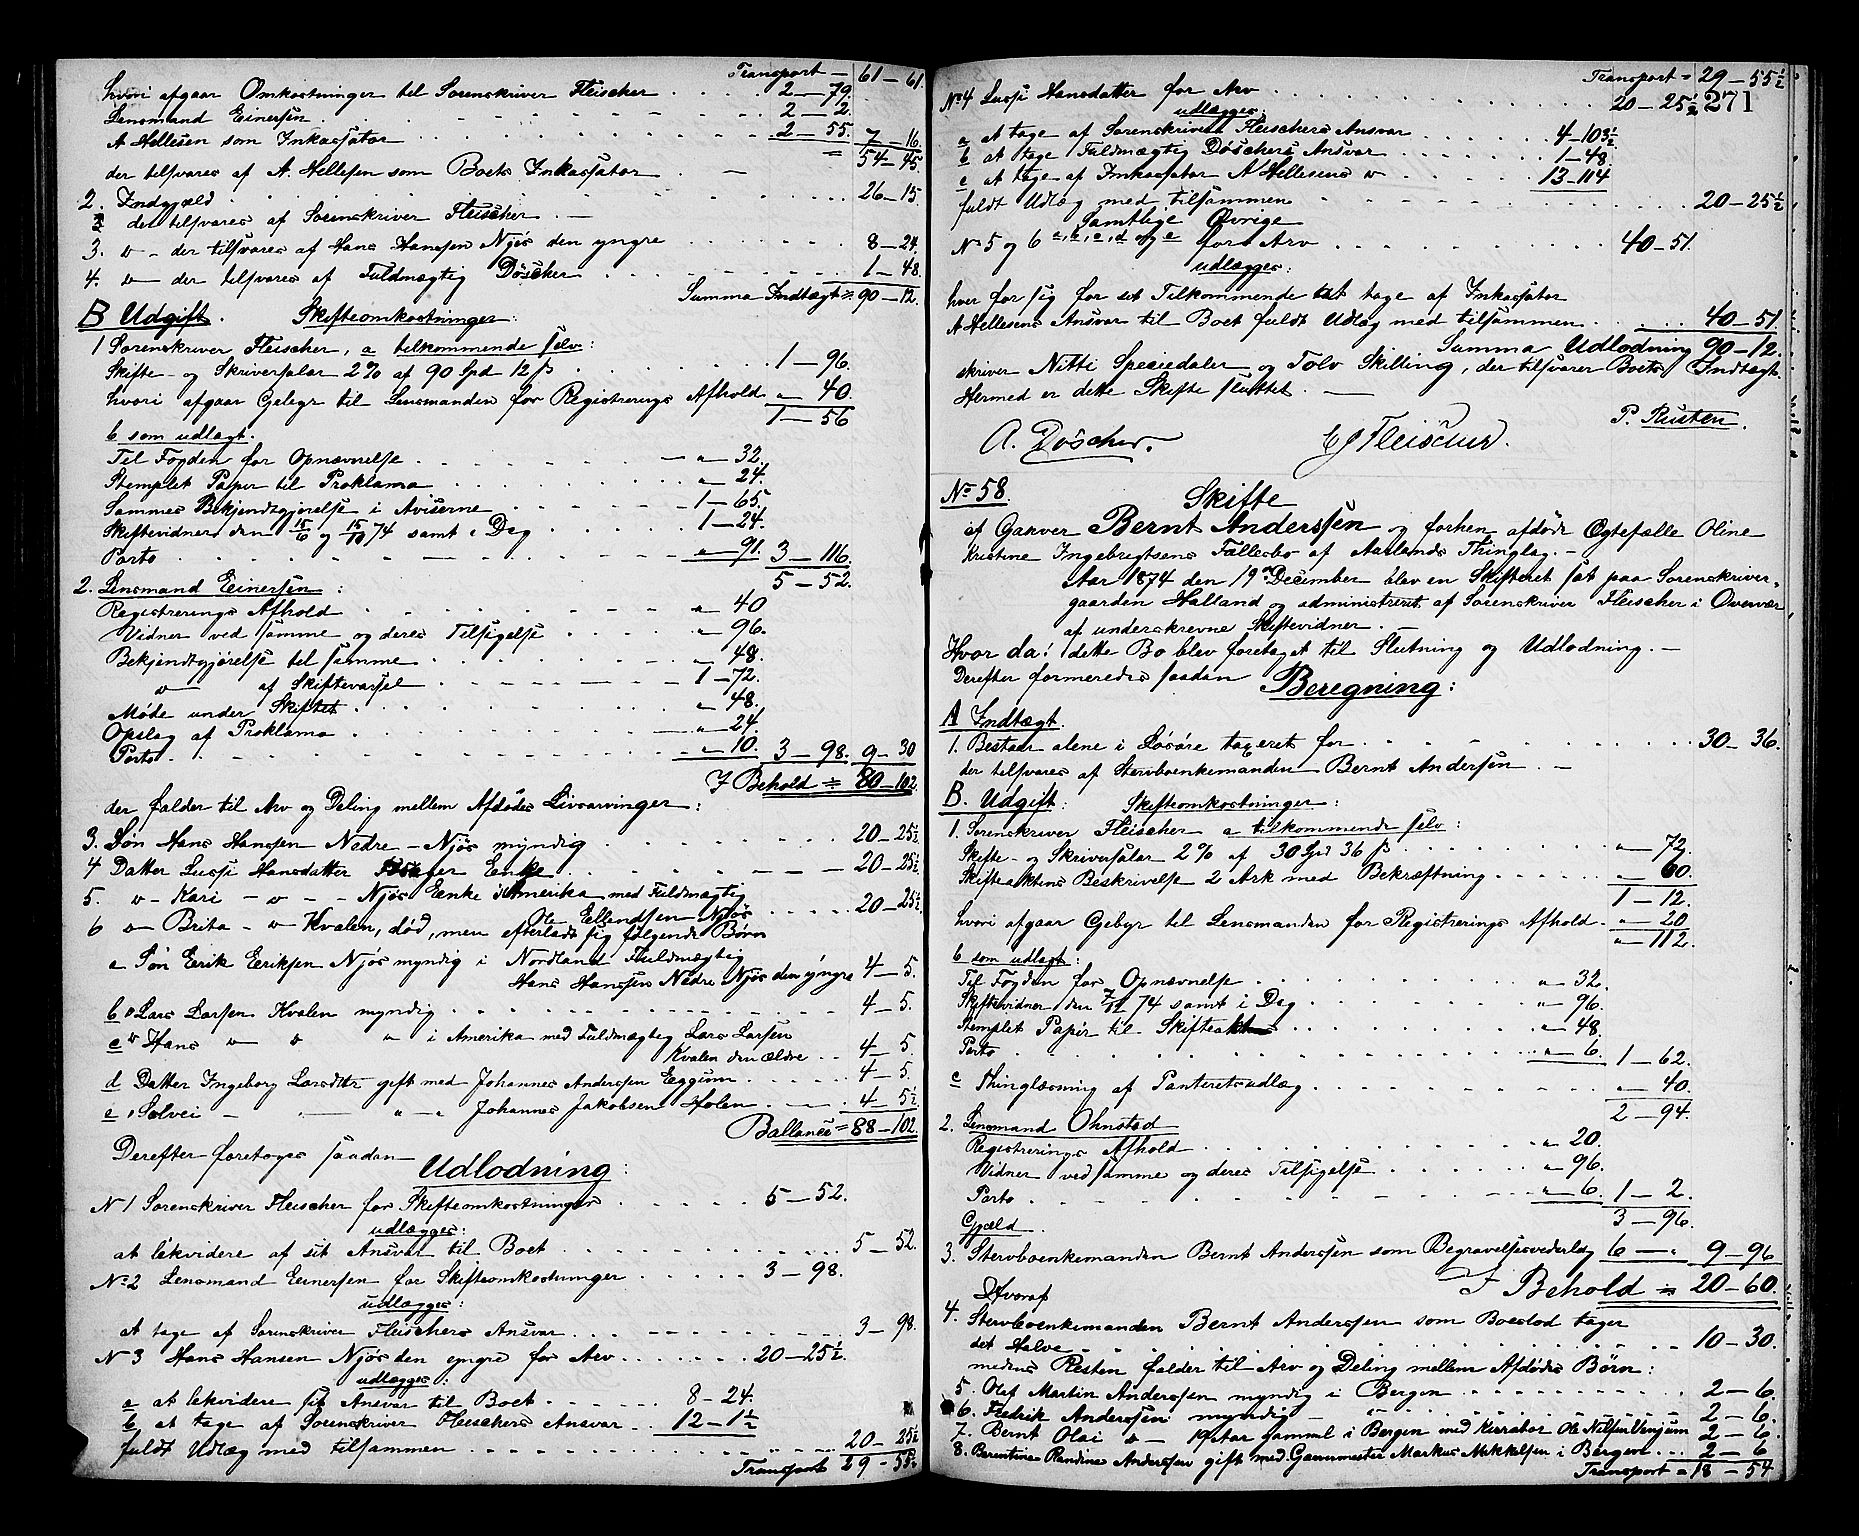 Transport — 61 — 61.
hvori afgaar Omkostninger til Sorenskriver Fleischer . . . . 2 — 79.
Lensmand Einersen . . . 2 — 2.
A Hellesen som Inkassator 2 — 55. 7 — 16.
= 54 — 45
der tilsvares af A. Hellesen som Boets Inkassator . —
2. Indgjæld . . . 26 — 15.
der tilsvares af Sorenskriver Fleischer . —
3. do — der tilsvares af Hans Hanssen Njøs den yngre . . . 8 — 24.
4. do — der tilsvares af Fuldmægtig Döscher . . . 1 — 48.
Summa Indtægt = 90 — 12.
B Udgift. Skifteomkostninger:
1 Sorenskriver Fleischer, a tilkommende selv:
Skifte- og Skriversalær 2% af 90 Spd 12 ß . . . 1 — 96.
hvori afgaar Gebyr til Lensmanden for Registrerings Afhold " — 40.
1 — 56
b som udlagt.
Til Fogden for Opnævnelse . . . " — 32.
Stemplet Papir til Proklama . . . " — 24.
Sammes Bekjendtgjørelse i Aviserne . . . 1 — 65.
Skiftevidner den 15/6 og 15/10 74 samt i Dag . . . 1 — 24.
Porto . . . " — 91. 3 — 116.
5 — 52.
2. Lensmand Einersen:
Registrerings Afhold . . . " 40
Vidner ved samme og deres Tilsigelse . . . " 96.
Bekjendtgjørelse til samme . . . " 48.
do — af Skiftevarsel . . . 1 — 72.
Møde under Skiftet . . . " 48.
Opslag af Proklama . . . " — 24.
Porto . . . " — 10. 3 — 98. 9 — 30
I Behold = 80 — 102
der falder til Arv og Deling mellem Afdødes Livsarvinger:
3. Søn Hans Hanssen Nedre-Njøs myndig . . . 20 — 25½
4 Datter Lussi Hansdatter Enke . . . 20 — 25½
5. do — Kari — do — Njøs Enke i Amerika med Fuldmægtig
Ole Ellendsen Njøs . . . 20 — 25½
6 do — Brita — do Kvalen, død, men efterladt sig følgende Børn
a Søn Erik Eriksen Njøs myndig i Nordland Fuldmægtig
Hans Hanssen Nedre Njøs den yngre 4 — 5.
b do Lars Larsen Kvalen myndig . . . 4 — 5.
c do Hans do do " i Amerika med Fuldmægtig Lars Larsen
Kvalen den ældre . . 4 — 5.
d Datter Ingeborg Larsdtr gift med Johannes Anderssen Eggum . . . 4 — 5.
e " Solvei — — " — " Johannes Jakobsen Holen . . . 4 — 5½
Ballance = 88 — 102.
Derefter foretoges saadan
Udlodning:
N 1 Sorenskriver Fleischer for Skifteomkostninger . . . 5 — 52.
udlægges:
at likvidere af sit Ansvar til Boet . . . 5 — 52.
No 2 Lensmand Einersen for Skifteomkostninger . . . 3 — 98.
udlægges:
at tage af Sorenskriver Fleischers Ansvar . . . 3 — 98.
N 3 Hans Hansen Njøs den yngre for Arv . . . 20 — 25½.
udlægges:
a at likvidere sit Ansvar til Boet . . . 8 — 24.
b at tage af Sorenskriver Fleischers Ansvar . . . 12 — 1½
fuldt Udlæg med tilsammen . . . 20 — 25½
Transport 29 — 55½
Transport = 29 — 55½
271
No 4 Lussi Hansdatter for Arv . . . 20 — 25½
udlægges:
a at tage af Sorenskriver Fleischers Ansvar . . . 4 — 103½
b at tage Fuldmægtig Döschers Ansvar . . . 1 — 48.
c at tage af Inkassator A Hellesens do . . . 13 — 114
fuldt Udlæg med tilsammen . . . 20 — 25½
Samtlige Øvrige
No 5 og 6 a, b, c, d og e for Arv . . . 40 — 51.
udlægges:
hver for sig for sit Tilkommende at tage af Inkassator
A Hellesens Ansvar til Boet fuldt Udlæg med tilsammen . . . 40 — 51.
Summa Udlodning 90 — 12.
skriver Nitti Speciedaler og Tolv Skilling, der tilsvarer Boets Indtægt.
Hermed er dette Skifte sluttet. —
A. Döscher. E J Fleischer. P. Rusten.
No 58.
Skifte
af Garver Bernt Anderssen og forhen afdøde Ægtefælle Oline
Kristine Ingebrigtsens Fællesbo af Aarlands Thinglag. —
Aar 1874 den 19de December blev en Skifteret sat paa Sorenskriver-
gaarden Halland og administreret af Sorenskriver Fleischer i Overvær
af underskrevne Skiftevidner. —
Hvor da: dette Bo blev foretaget til Slutning og Udlodning. —
Derefter formeredes saadan Beregning:
A Indtægt.
1. Bestaar alene i Løsøre taxeret for . . . 30 — 36.
der tilsvares af Stervboenkemanden Bernt Andersen . —
B. Udgift: Skifteomkostninger:
1. Sorenskriver Fleischer a tilkommende selv:
Skifte- og Skriversalær 2% af 30 Spd 36 ß . . . " — 72.
Skifteaktens Beskrivelse 2 Ark med Bekræftning . . . " — 60.
1 — 12.
hvori afgaar Gebyr til Lensmanden for Registrerings Afhold . " — 20
" — 112.
b som udlagt:
Til Fogden for Opnævnelse . . . " 32.
Skiftevidner den 7/11 74 samt i Dag . . . " 96.
Stemplet Papir til Skifteakten . . . " 48.
Porto . . . " 6. 1 — 62.
c Thinglæsning af Panteretsudlæg . . . " — 40.
2 — 94.
2. Lensmand Ohnstad
Registrerings Afhold . . . " 20.
Vidner ved samme og deres Tilsigelse . . . " 96.
Porto . . . " — 6. 1 — 2.
3 — 96.
Gjæld.
3. Stervboenkemanden Bernt Anderssen som Begravelsesvederlag 6 — " 9 — 96
I Behold = 20 — 60.
Hvoraf
4. Stervboenkemanden Bernt Anderssen som Boeslod tager
det Halve . . . 10 — 30.
medens Resten falder til Arv og Deling mellem Afdødes Børn:
5. Olaf Martin Anderssen myndig i Bergen . . . 2 — 6.
6. Fredrik Anderssen myndig — " . . . 2 — 6.
7. Bernt Olai do — 19 Aar gammel i Bergen med Kurator Ole Nilsen Vinjum 2 — 6.
8. Berentine Randine Anderssen gift med Garvermester Markus Mikkelsen i Bergen . . . 2 — 6
Transport = 18 — 54